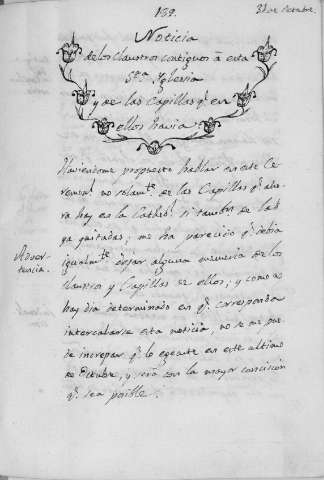 132.
31 de Octubre.
Noticia
de los Claustros contiguos â esta
Sta. Iglesia
y de las Capillas q.e en
ellos havia.
Haviendome propuesto hablar en este Ce-
remon.l no solam.te de las Capillas q.e aho-
ra hay en la Cathed.l si tambn. de las
ya quitadas; me ha parecido q.e debia
igualm.te dejar alguna memoria de los
Claustros y Capillas de ellos, y como no
hay dia determinado en q.e corresponda
intercalarse esta noticia, no se me pue-
de increpar q.e lo egecute en este ultimo
de Octubre, y será con la mayor concisión
q.e sea posible.
Adver-
tencia.